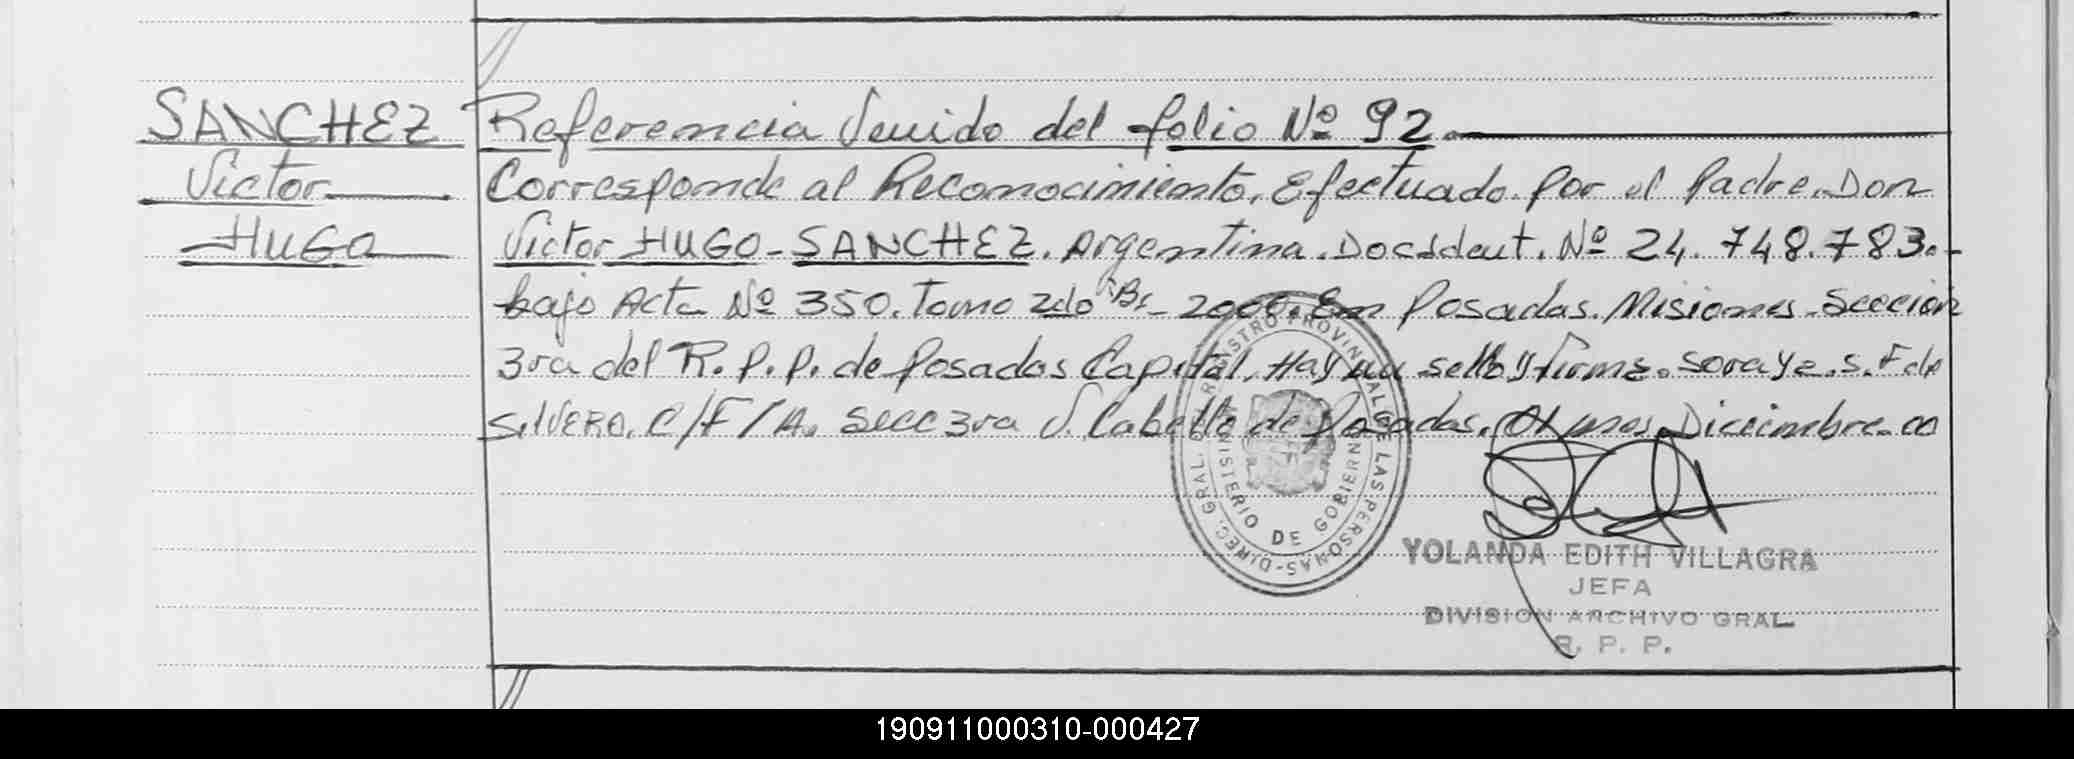 SANCHEZ
Victor
HUGO
Referencia Venido del folio Nº 92.
Corresponde al Reconocimiento. Efectuado por el Padre. Don
Victor HUGO - SANCHEZ. Argentina. Doc Ident. Nº 24.748.783.-
bajo Acta Nº 350. Tomo 2do Bs - 2000. En Posadas. Misiones. Seccion
3ra del R.P.P. de Posadas Capital. Hay un sello y firma. Soraya. S. F de
SilVERO. C/F/A. Secc 3ra V. Cabello de Posadas. mes Diciembre
DIREC. GRAL. DE REGISTRO PROVINCIAL DE LAS PERSONAS
MINISTERIO DE GOBIERNO
YOLANDA EDITH VILLAGRA
JEFA
DIVISION ARCHIVO GRAL.
R. P. P.
190911000310-000427